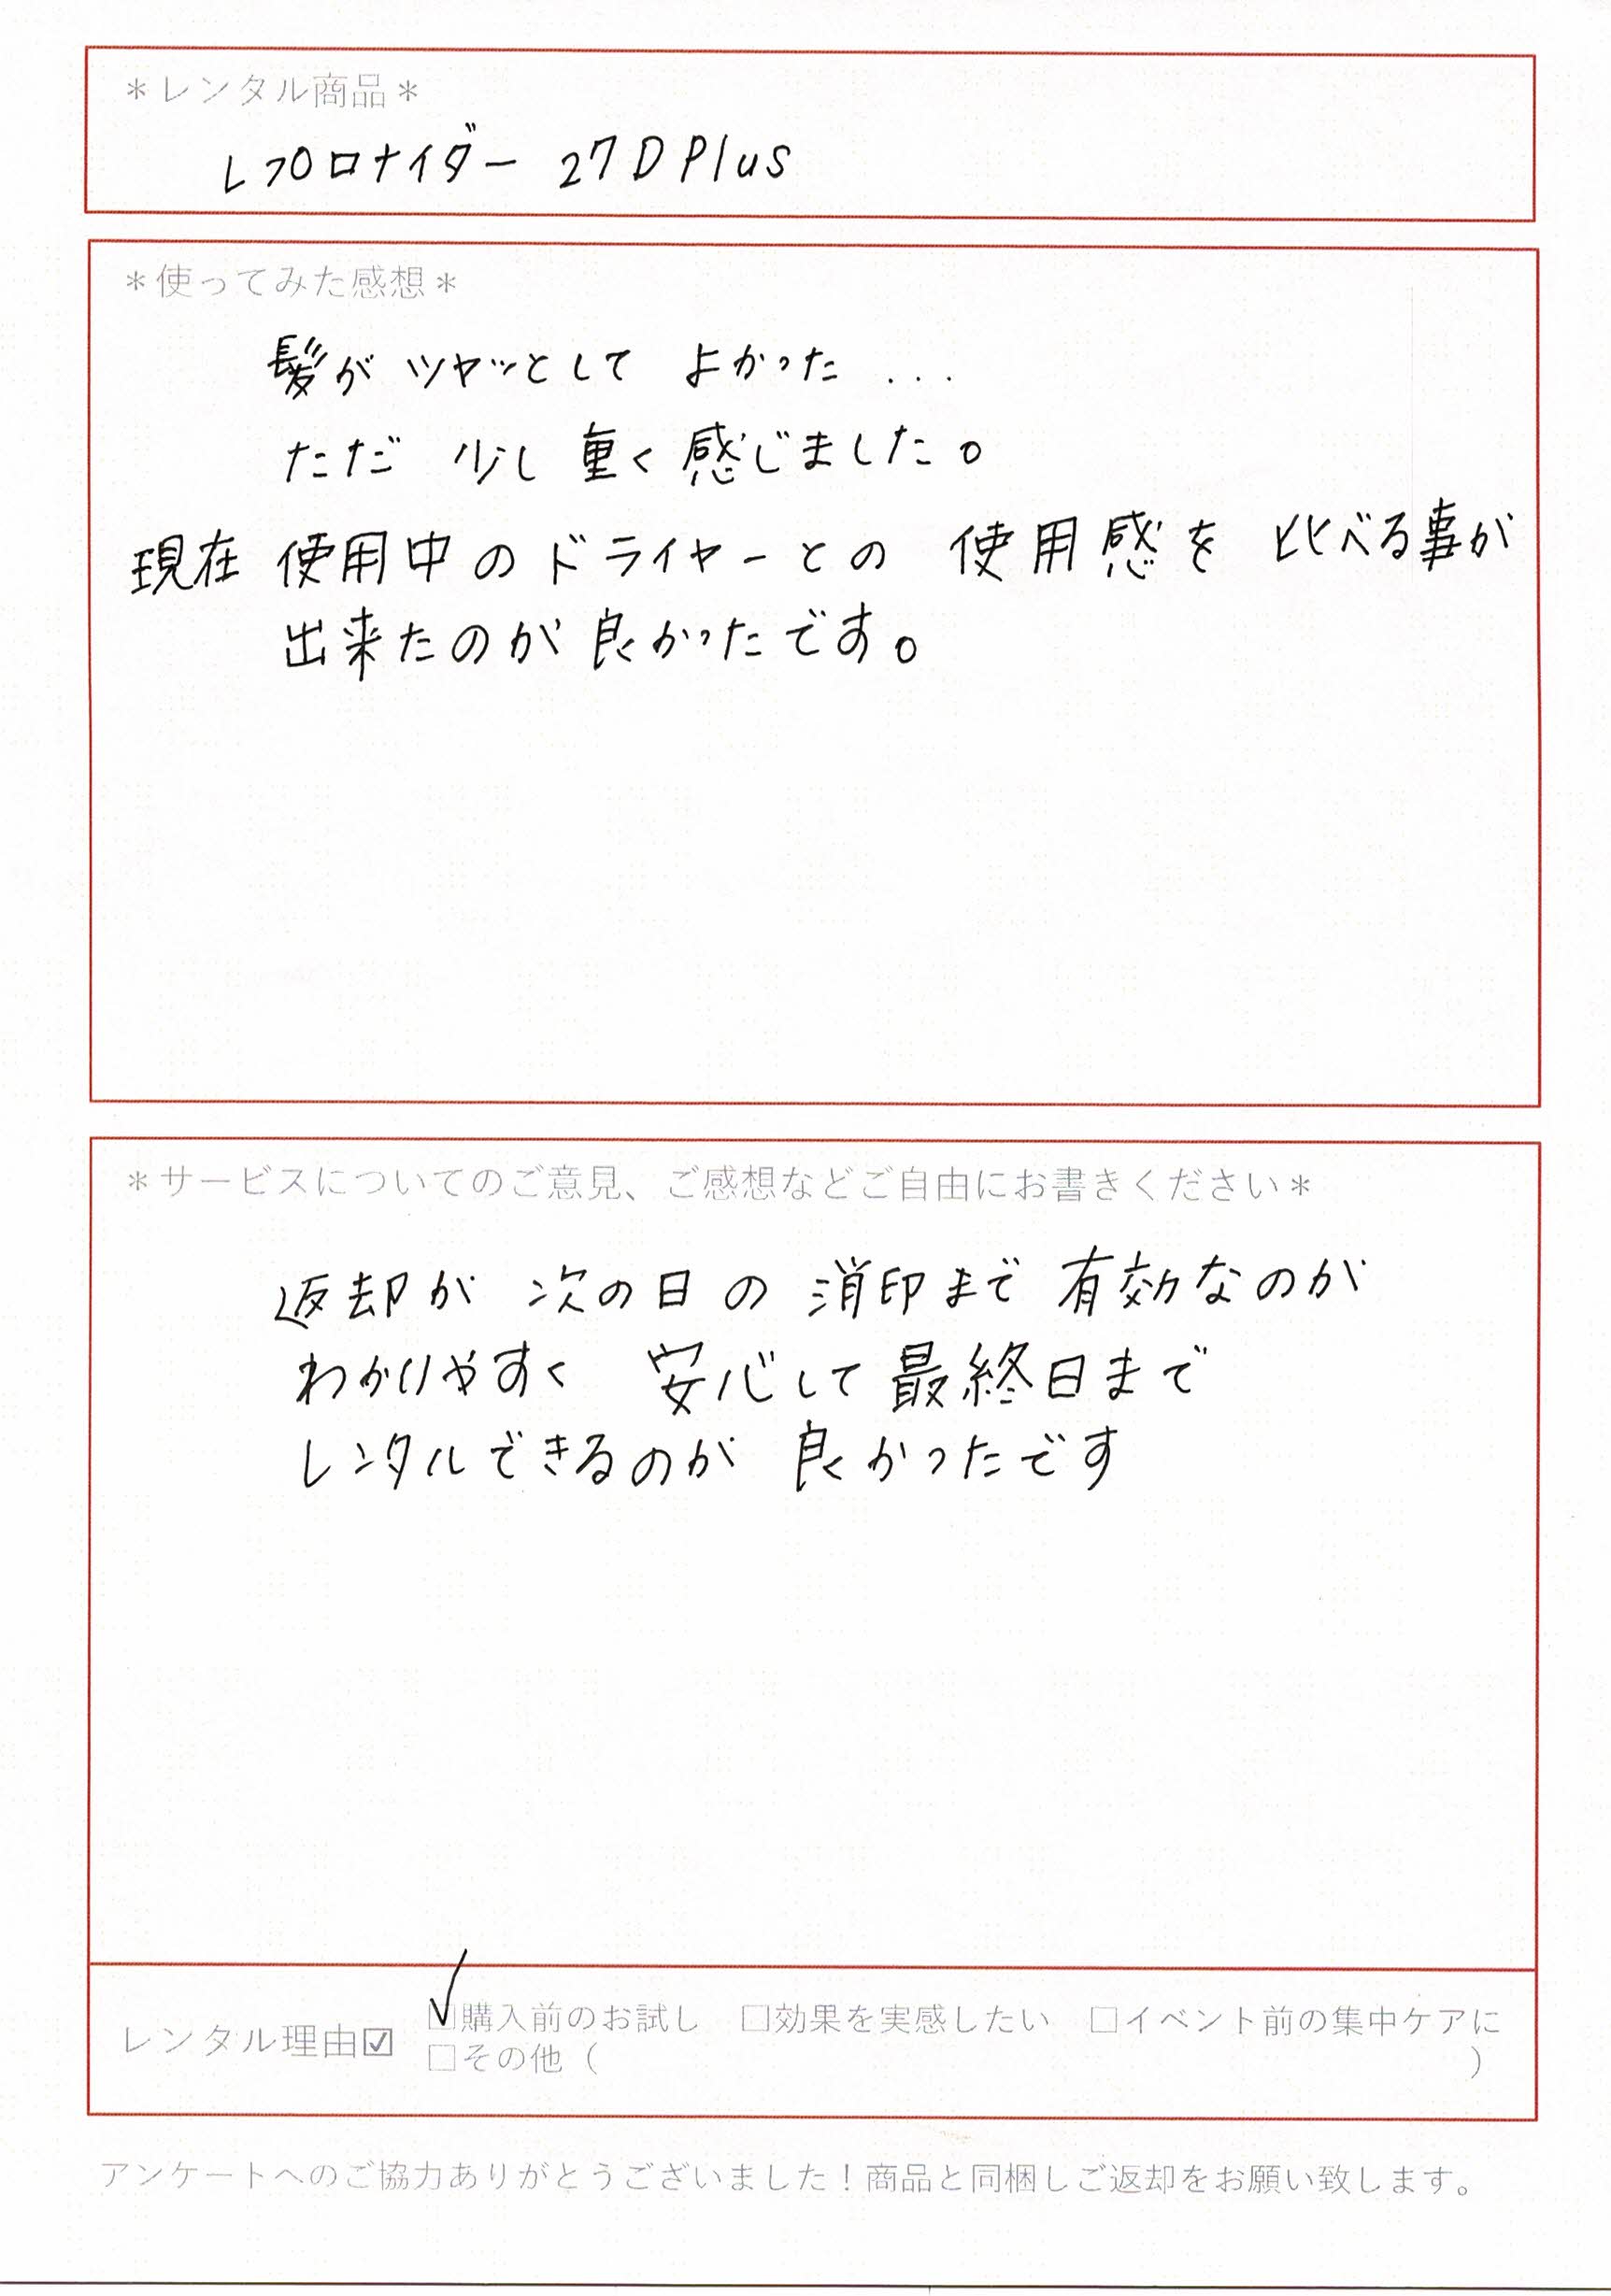 ＊レンタル商品＊
レプロナイザー 27D Plus
＊使ってみた感想＊
髪が ツヤッとして よかった ...
ただ 少し 重く 感じました。
現在 使用中の ドライヤーとの 使用感を 比べる事が
出来たのが 良かったです。
＊サービスについてのご意見、ご感想などご自由にお書きください＊
返却が 次の日の 消印まで 有効なのが
わかりやすく 安心して 最終日まで
レンタルできるのが 良かったです
レンタル理由☑ ☑購入前のお試し □効果を実感したい □イベント前の集中ケアに
□その他（ ）
アンケートへのご協力ありがとうございました！商品と同梱しご返却をお願い致します。